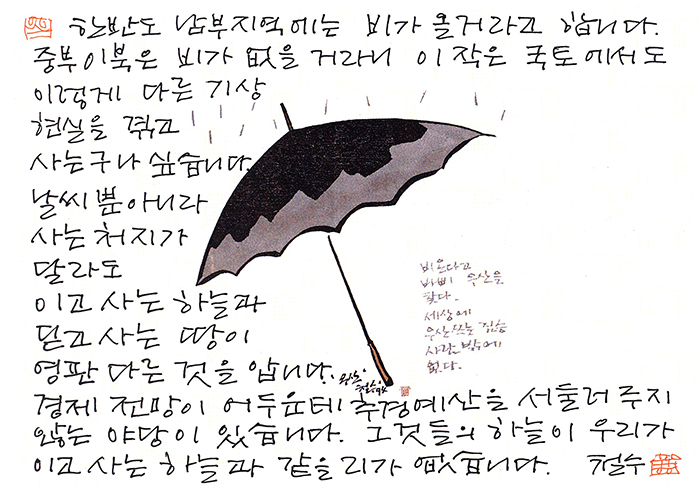 한반도 남부지역에는 비가 올거라고 합니다.
중부이북은 비가 없을 거라니 이 작은 국토에서도
이렇게 다른 기상
현실을 겪고
사는구나 싶습니다.
날씨 뿐 아니라
사는 처지가
달라도
이고 사는 하늘과
딛고 사는 땅이
영판 다른 것을 압니다.
경제 전망이 어두운데 추경예산을 서둘러 주지
않는 야당이 있습니다. 그것들의 하늘이 우리가
이고 사는 하늘과 같을 리가 없습니다. 철수
비온다고
바삐 우산을
찾다.
세상에
우산쓰는 짐승
사람밖에
없다.
우산
철수